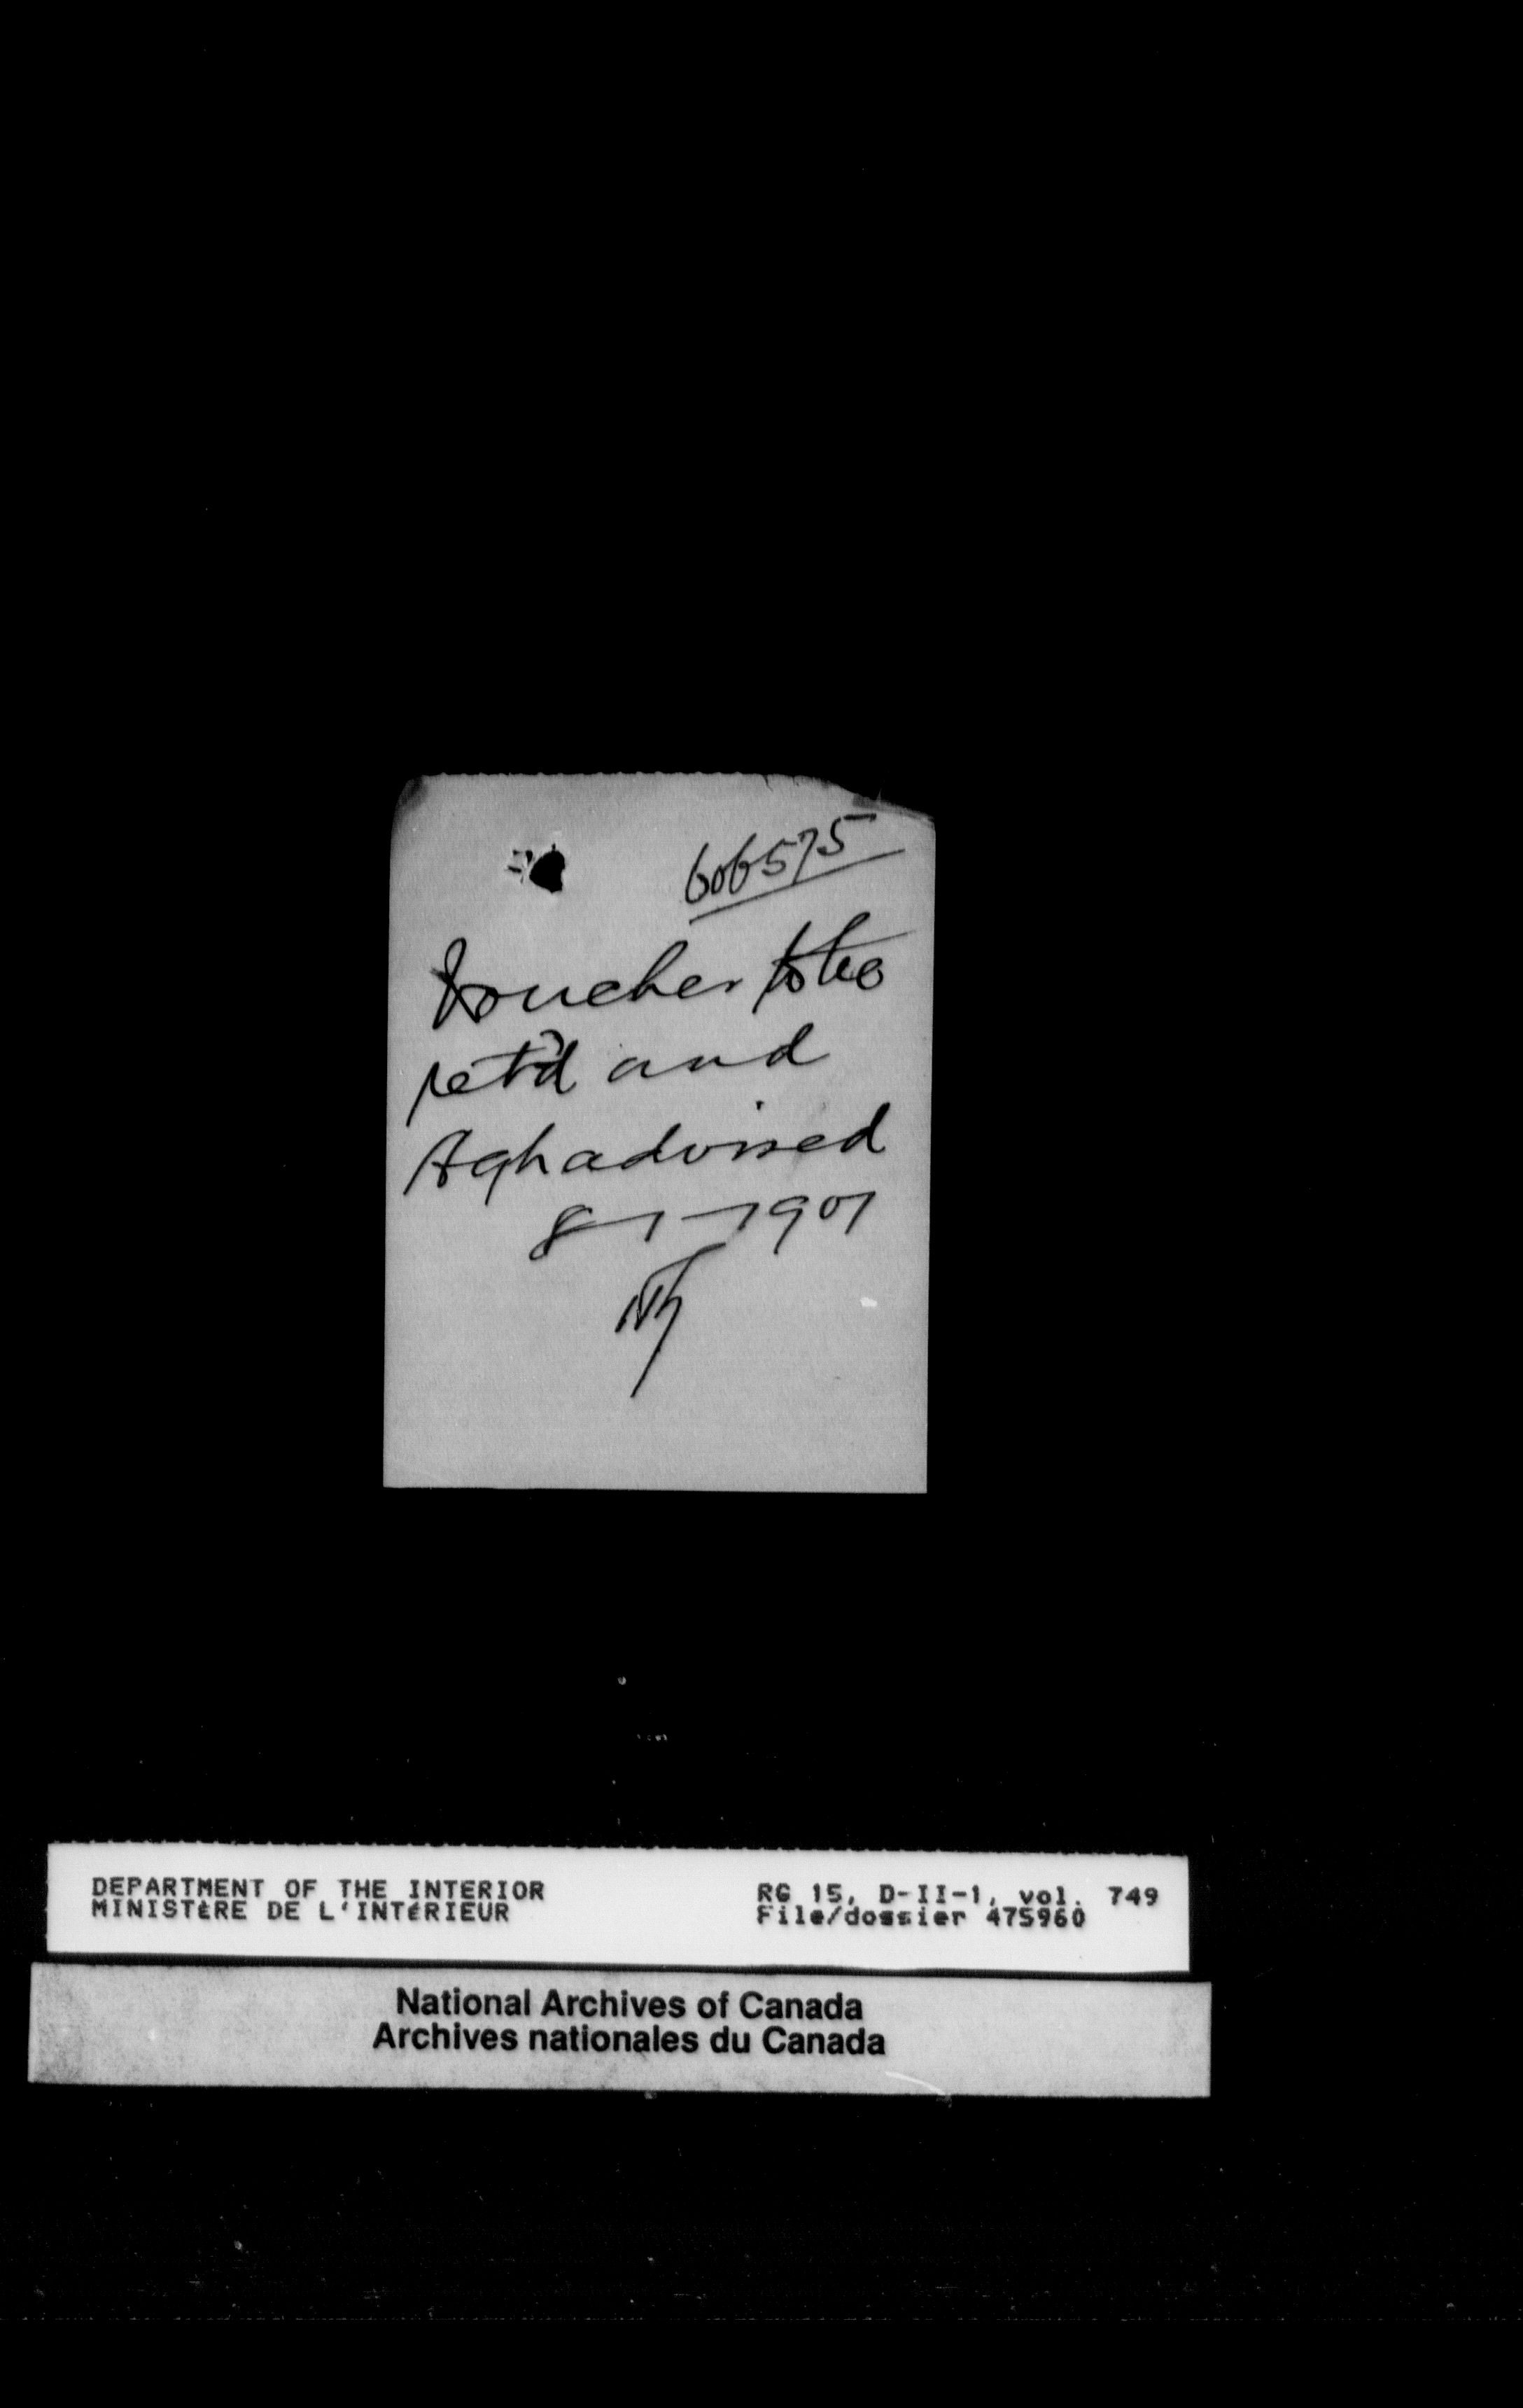 606575
Voucher to be
ret'd and
Agt advised
8-1-1901
DEPARTMENT OF THE INTERIOR
MINISTÈRE DE L'INTÉRIEUR
RG 15, D-II-1, vol. 749
File/dossier 475960
National Archives of Canada
Archives nationales du Canada